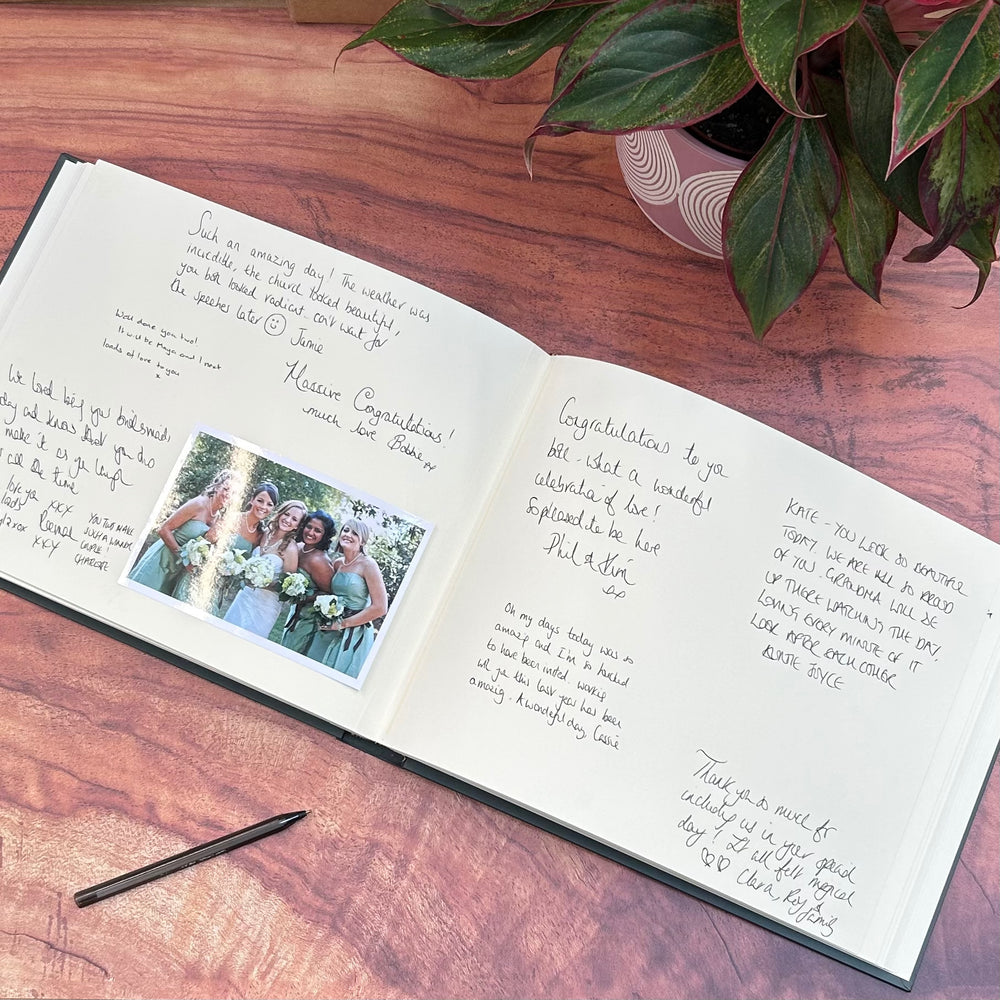 Such an amazing day! The weather was
incredible, the church looked beautiful,
you both looked radiant. can't wait for
the speeches later Jamie
Well done you two!
It will be Maya and I next
loads of love to you
x
Massive Congratulations!
much love Bobbie xx
We loved being your bridesmaids
day and know that you two
make it as you laugh
all the time
love you xxx
xxx
YOU TWO MAKE
SUCH A WINNER
COUPLE!
CHARLOTTE
Congratulations to you
both - what a wonderful
celebration of love!
So pleased to be here
Phil & Kim
xx
Oh my days today was so
amazing and I'm so honoured
to have been invited. working
with you this last year has been
amazing. A wonderful day, Cassie
KATE - YOU LOOK SO BEAUTIFUL
TODAY. WE ARE ALL SO PROUD
OF YOU. GRANDMA WILL BE
UP THERE WATCHING THE DAY,
LOVING EVERY MINUTE OF IT
LOOK AFTER EACH OTHER
AUNTIE JOYCE
Thank you so much for
including us in your special
day! It all felt magical
Clara, Roy &
family